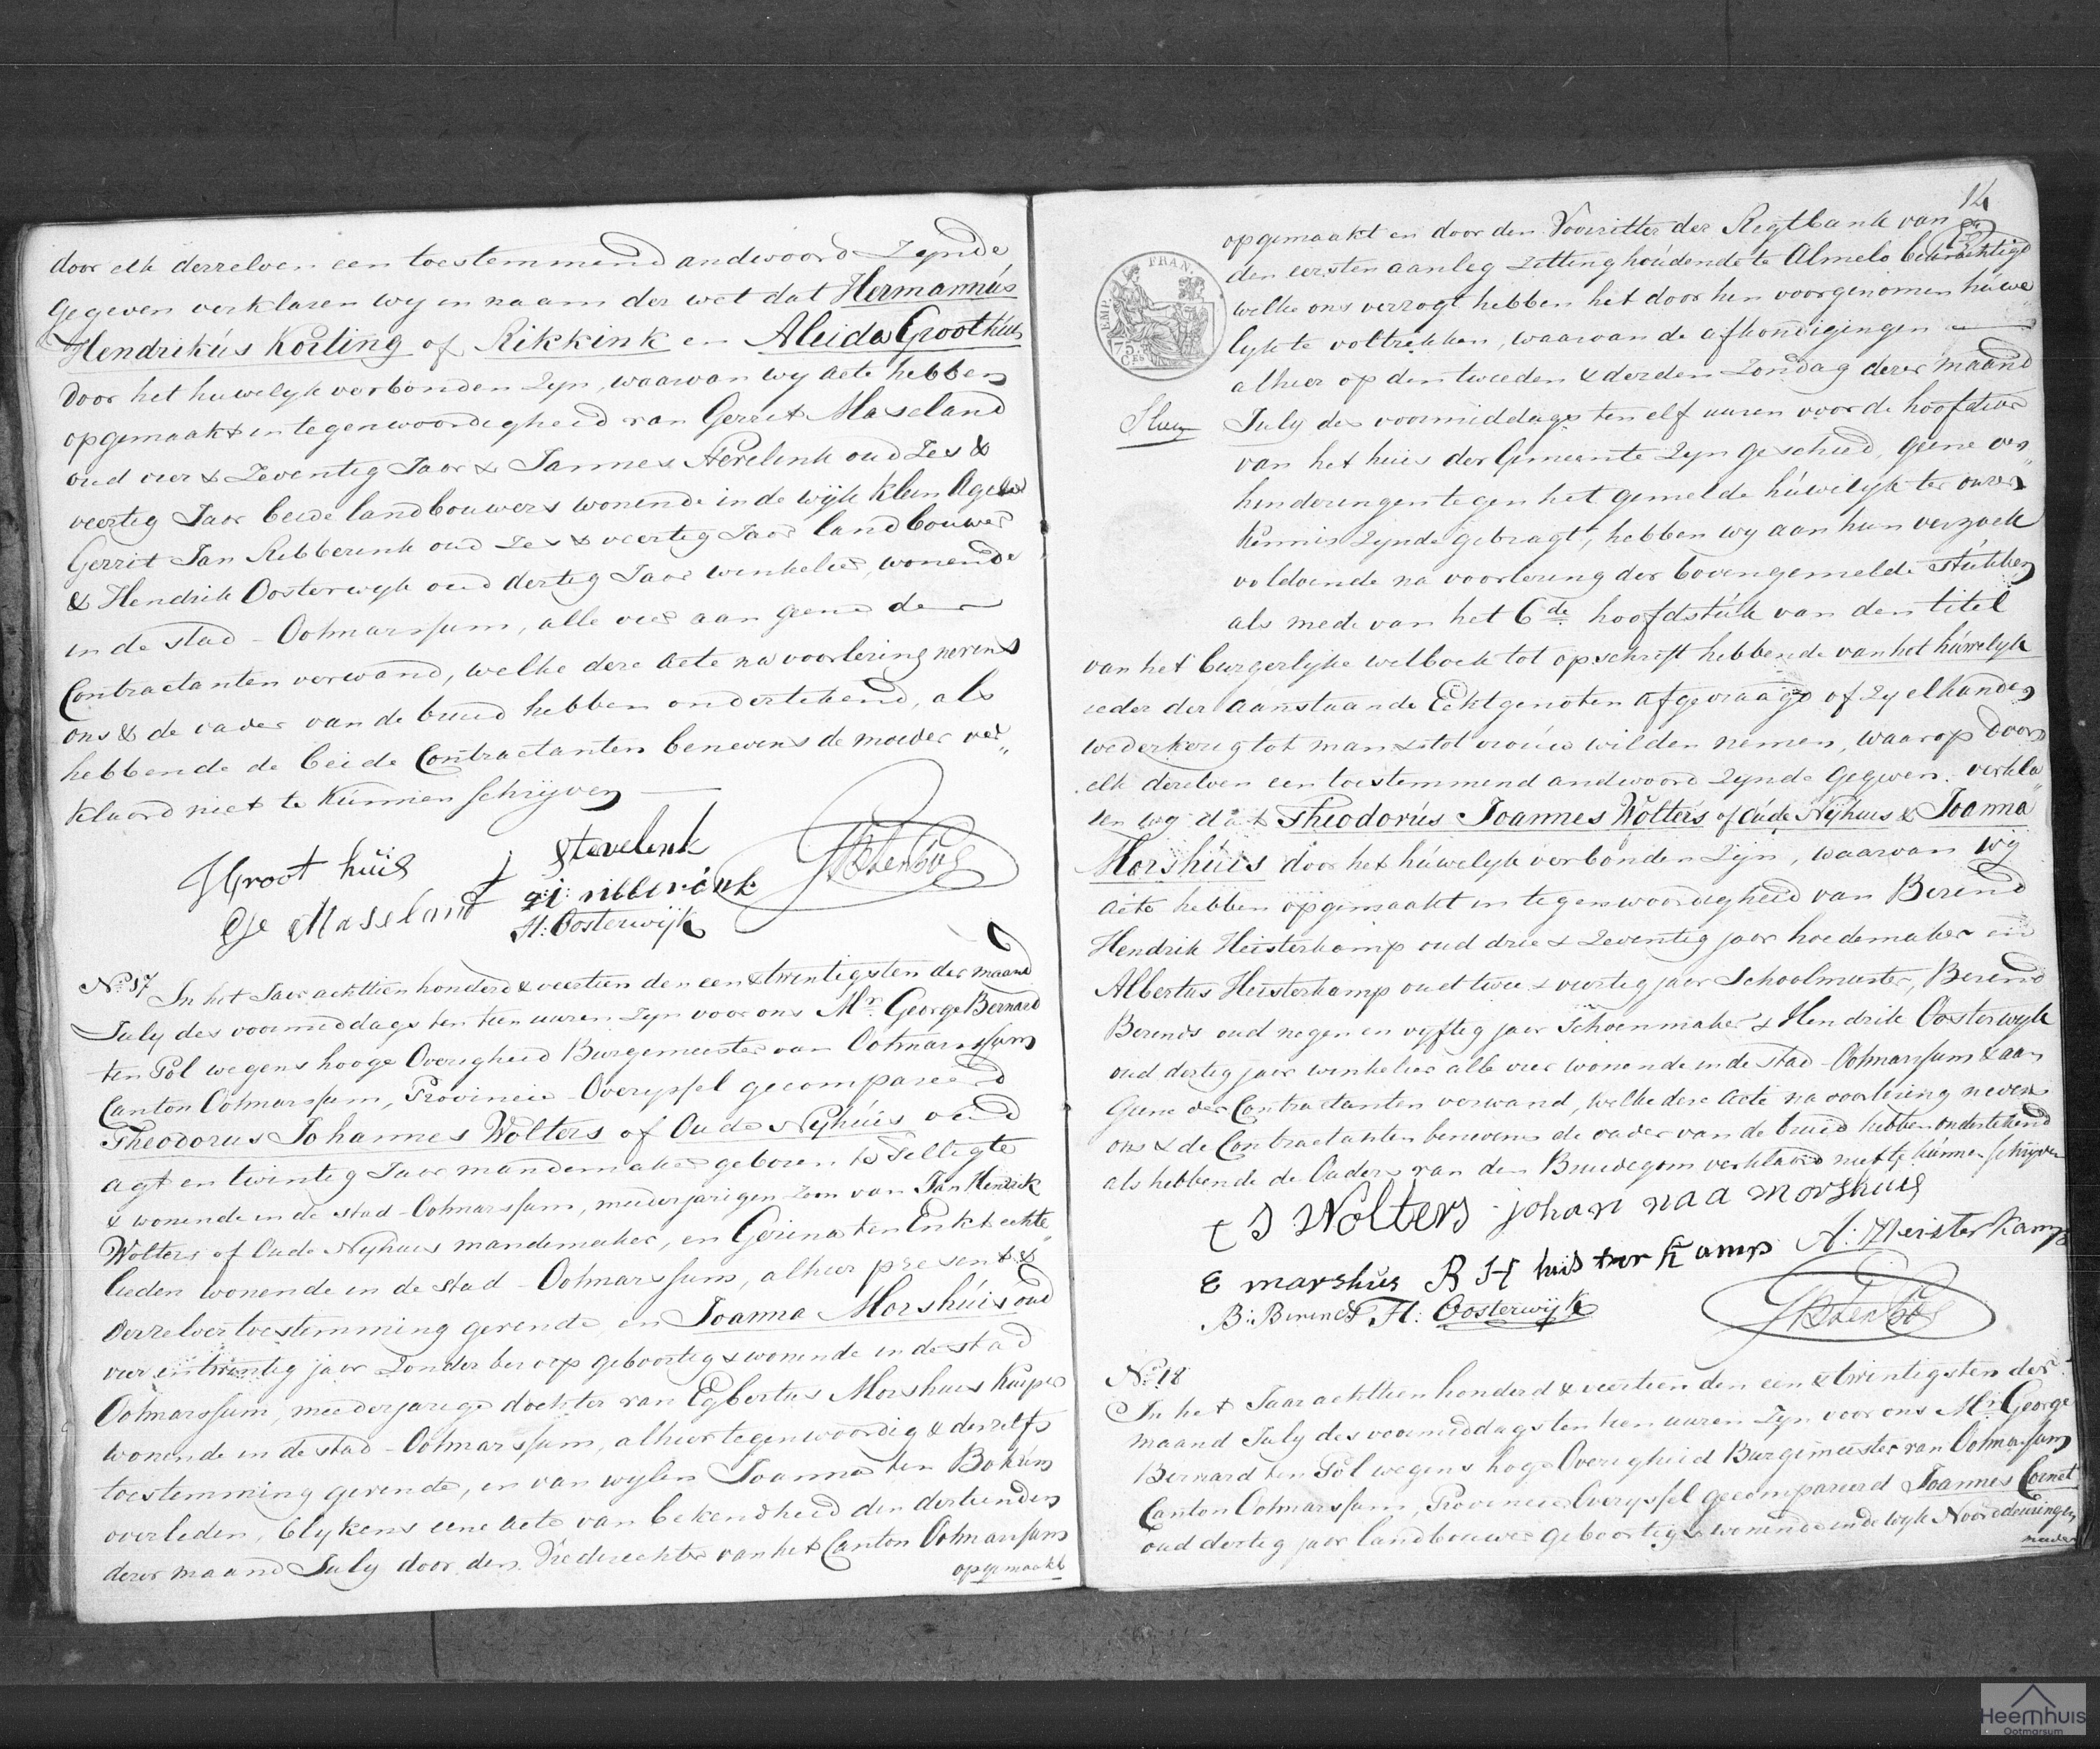 door elk derzelven een toestemmend andwoord zynde
gegeven verklaren wy in naam der wet dat Hermannús
Hendrikús Koiling of Rikkink en Aleida Groothúis
door het huwelyk verbonden zyn, waarvan wy acte hebben
opgemaakt in tegenwoordigheid van Gerrit Maseland
oud vier & zeventig Jaar & Jannes Stevelink oud zes &
veertig Jaar beide landbouwers wonende in de wijk klein Agelo
Gerrit Jan Ribberink oud zes & veertig Jaar landbouwer
& Hendrik Oosterwyk oud dertig Jaar winkelier, wonende
in de stad Ootmarssum, alle vier aan geene der
Contractanten verwand, welke deze acte na voorlezing nevens
ons & de vader van de bruid hebben ondertekend, als
hebbende de beide Contractanten benevens de moeder ver„
klaard niet te kúnnen schrijven
J Groot húis
J Stevelink
Ge Maseland
g: j: ribberink
H: Oosterwijk
GBtenPol
No. 17 In het Jaar achttien honderd & veertien den een & twintigsten der maand
July des voormiddags ten tien uuren zyn voor ons Mr. George Bernard
ten Pol wegens hooge Overigheid Burgemeester van Ootmarssum
Canton Ootmarssum, Provincie Overyssel gecompareerd
Theodorus Johannes Wolters of Oude Nyhúis oud
agt en twintig Jaar mandemaker geboren te Tilligte
& wonende in de stad Ootmarssum, meederjarigen zoon van Jan Hendrik
Wolters of Oude Nyhuus mandemaker, en Gesina ten Enkt echte„
lieden wonende in de stad Ootmarssum, alhier present &
derzelver toestemming gevende, en Joanna Morshúis oud
vier en twintig jaar zonder beroep geboortig & wonende in de stad
Ootmarssum, meederjarige dochter van Egbertus Morshuis kuiper
wonende in de stad Ootmarssum, alhier tegenwoordig & deszelfs
toestemming gevende, en van wylen Joanna ten Bokúm
overleden, blykens eene acte van bekendheid den dertienden
dezer maand July door den Vrederechter van het Canton Ootmarssum
opgemaakt
14
opgemaakt en door den Voorzitter der Regtbank van
den eersten aanleg zitting hóudende te Almelo bekrachtigd
welke ons verzogt hebben het door hen voorgenomen húwe„
lyk te voltrekken, waarvan de afkondigingen
alhier op den tweeden & derden Zondag dezer maand
July des voormiddags ten elf uuren voor de hoofdeur
van het huis der Gemeente zyn geschied, geene ver„
hinderingen tegen het gemelde húwelyk ter onzer
kennis zynde gebragt, hebben wy aan hun verzoek
voldoende na voorlezing der bovengemelde stukken
als mede van het 6de hoofdstúk van den titel
van het burgerlyke wetboek tot opschrift hebbende van het húwelyk
ieder der aanstaande Echtgenoten afgevraagd of zy elkander
wederkerig tot man & tot vroúw wilden nemen, waarop door
elk derzelven een toestemmend andwoord zynde gegeven. verkla„
ren wy dat Theodorús Joannes Wolters of Oúde Nyhuus & Joanna
Morshúis door het húwelyk verbonden zijn, waarvan wy
acte hebben opgemaakt in tegenwoordigheid van Berend
Hendrik Heisterkamp oud drie & zeventig jaar hoedemaker en
Albertus Heisterkamp oud twee & veertig jaar Schoolmeester, Berend
Berends oud negen en vyftig jaar Schoenmaker & Hendrik Oosterwyk
oud dertig jaar winkelier alle vier wonende in de stad Ootmarssum & aan
geene der Contractanten verwand, welke deze acte na voorlezing nevens
ons & de Contractanten benevens de vader van de bruid hebben ondertekend
als hebbende de Ouders van den Bruidegom verklaard niet te kúnnen schrijven
t J Wolters johan naa morshuis
E marshus B H huis ter kamp A: Heisterkamp
B: Berends H: Oosterwijk
GBtenPol
No. 18
In het Jaar achttien honderd & veertien den een & twintigsten der
maand July des voormiddags ten tien uuren zyn voor ons Mr. George
Bernard ten Pol wegens hoge Overigheid Burgemeester van Ootmarssum
Canton Ootmarssum, Provincie Overyssel gecompareerd Joannes Coinet
oud dertig jaar landbouwer geboortig & wonende in de wyk Noorddeuringen
meeder
EMP. FRAN.
75
CES
Heemhuis
Ootmarsum